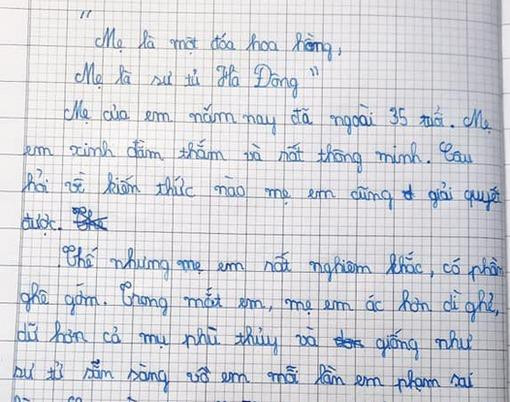 "
Mẹ là một đóa hoa hồng,
Mẹ là sư tử Hà Đông"
Mẹ của em năm nay đã ngoài 35 tuổi. Mẹ
em xinh đằm thắm và rất thông minh. Câu
hỏi về kiến thức nào mẹ em cũng giải quyết
được.
Thế nhưng mẹ em rất nghiêm khắc, có phần
ghê gớm. Trong mắt em, mẹ em ác hơn dì ghẻ,
dữ hơn cả mụ phù thủy và giống như
sư tử sẵn sàng vồ em mỗi lần em phạm sai